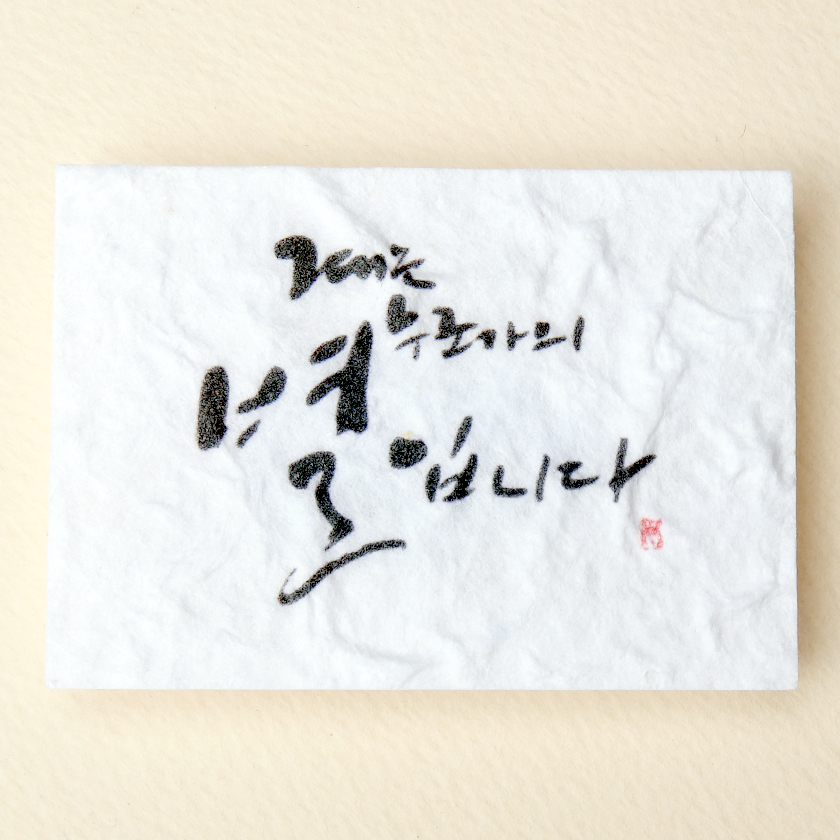 그대는
누군가의
별입니다